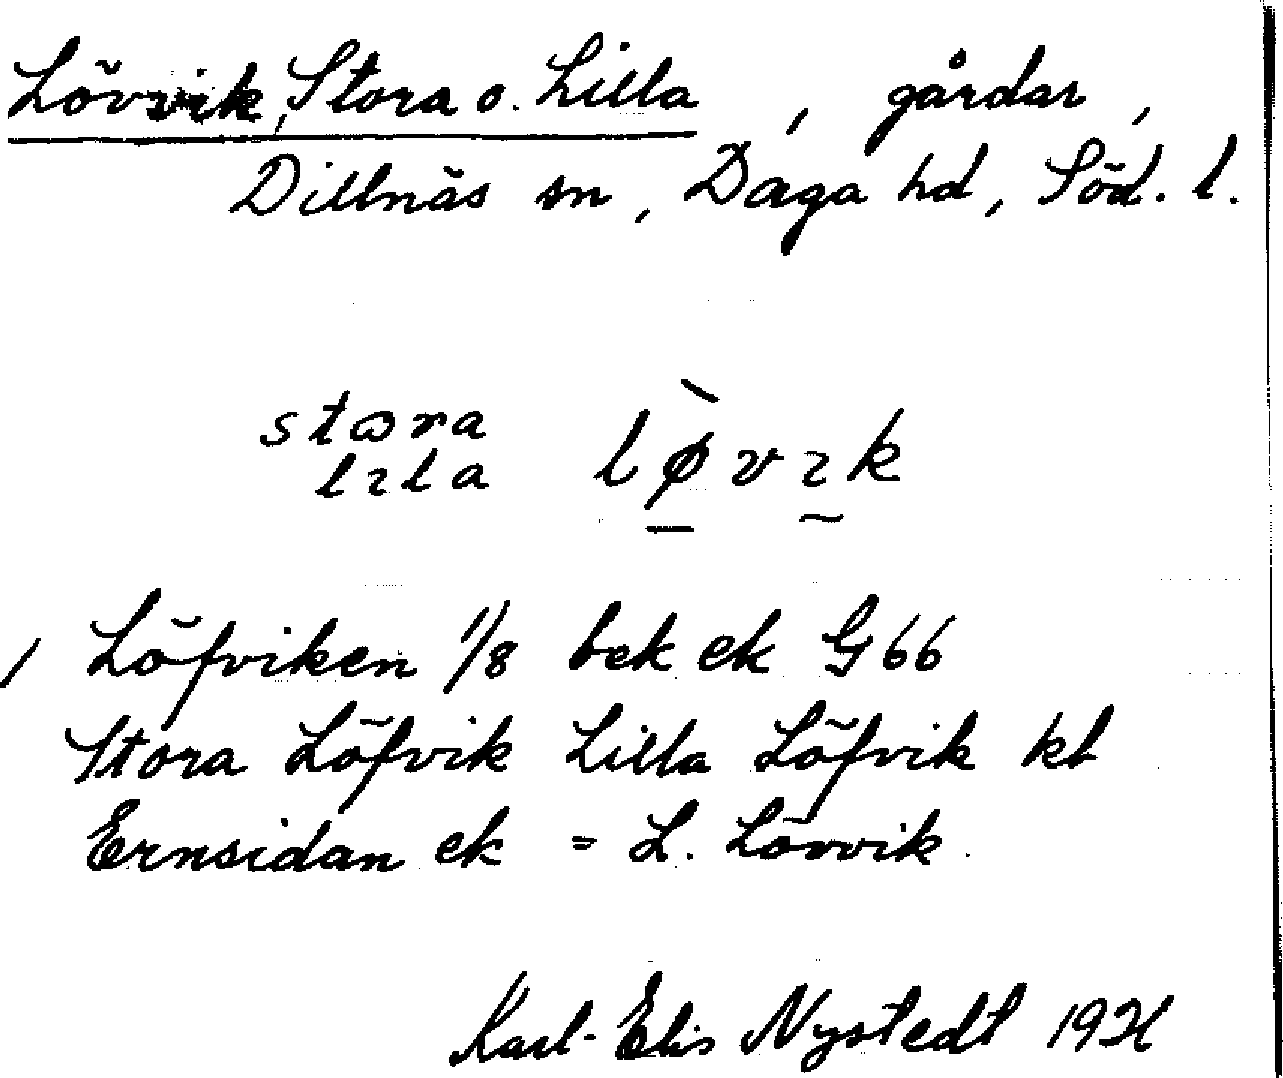 Lövvik, Stora o. Lilla, gårdar,
Dillnäs sn, Daga hd, Söd. l.
stɷra
lɪla løvɪk
/ Löfviken 1/8 bek ek G 66
Stora Löfvik Lilla Löfvik kb
Ernsidan ek = L. Lövvik.
Karl-Elis Nystedt